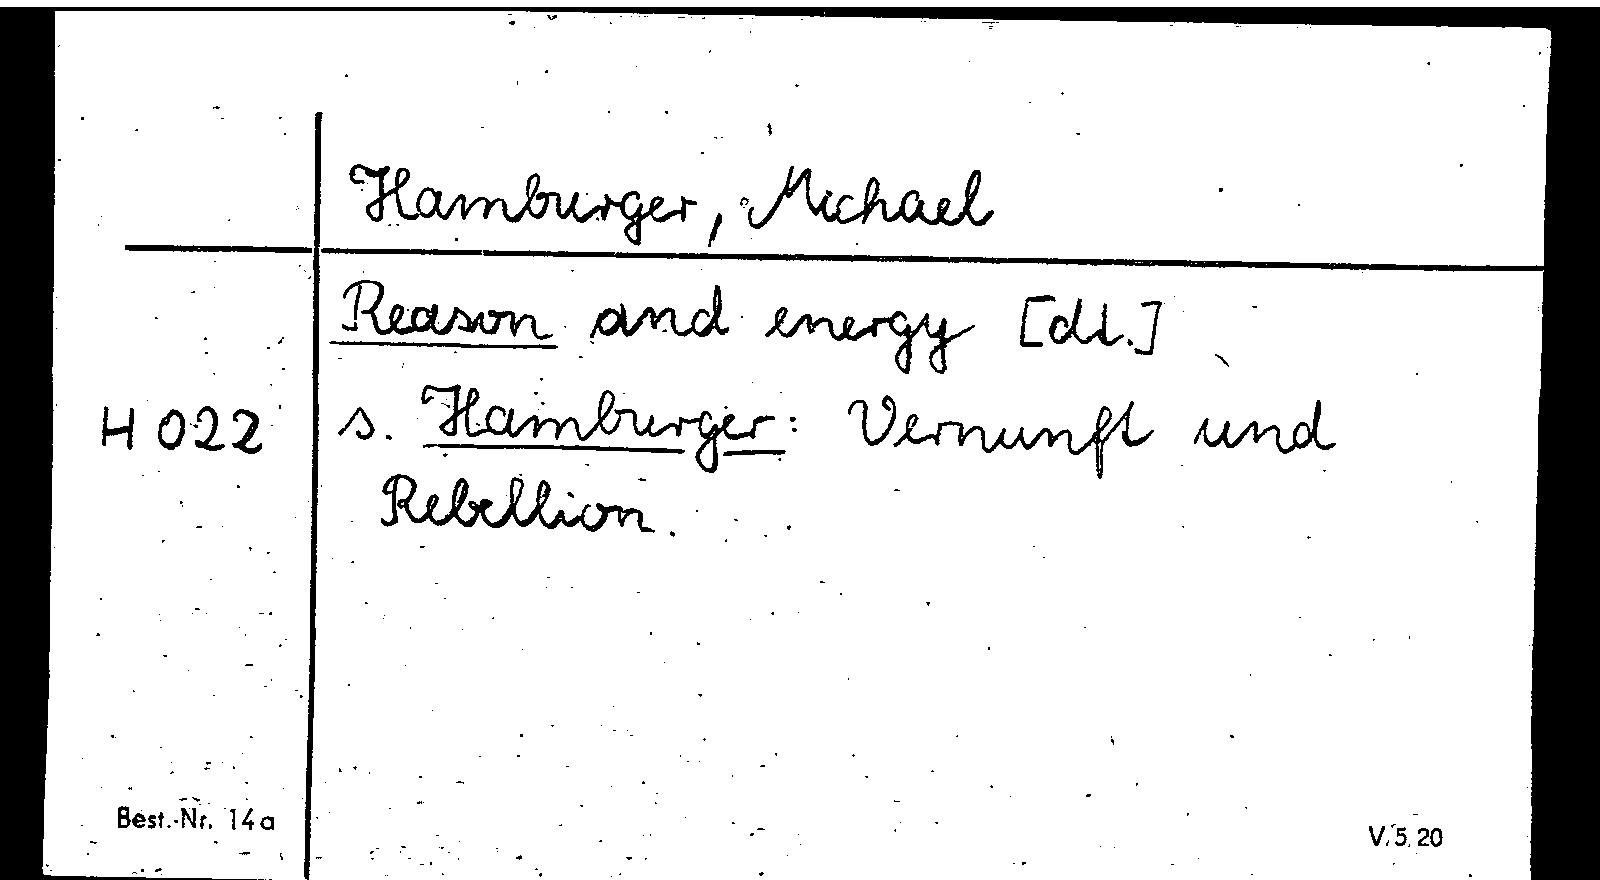 Hamburger, Michael
Reason and energy [dt.]
H 022 s. Hamburger: Vernunft und
Rebellion.
Best.-Nr. 14a V. 5. 20